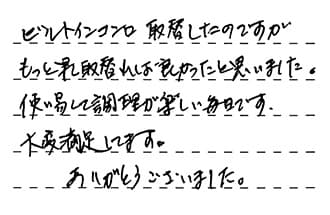 ビルトインコンロ 取替したのですが
もっと早く取替れば良かったと思いました。
使い易くて調理が楽しい毎日です.
大変満足してます。
ありがとうございました。